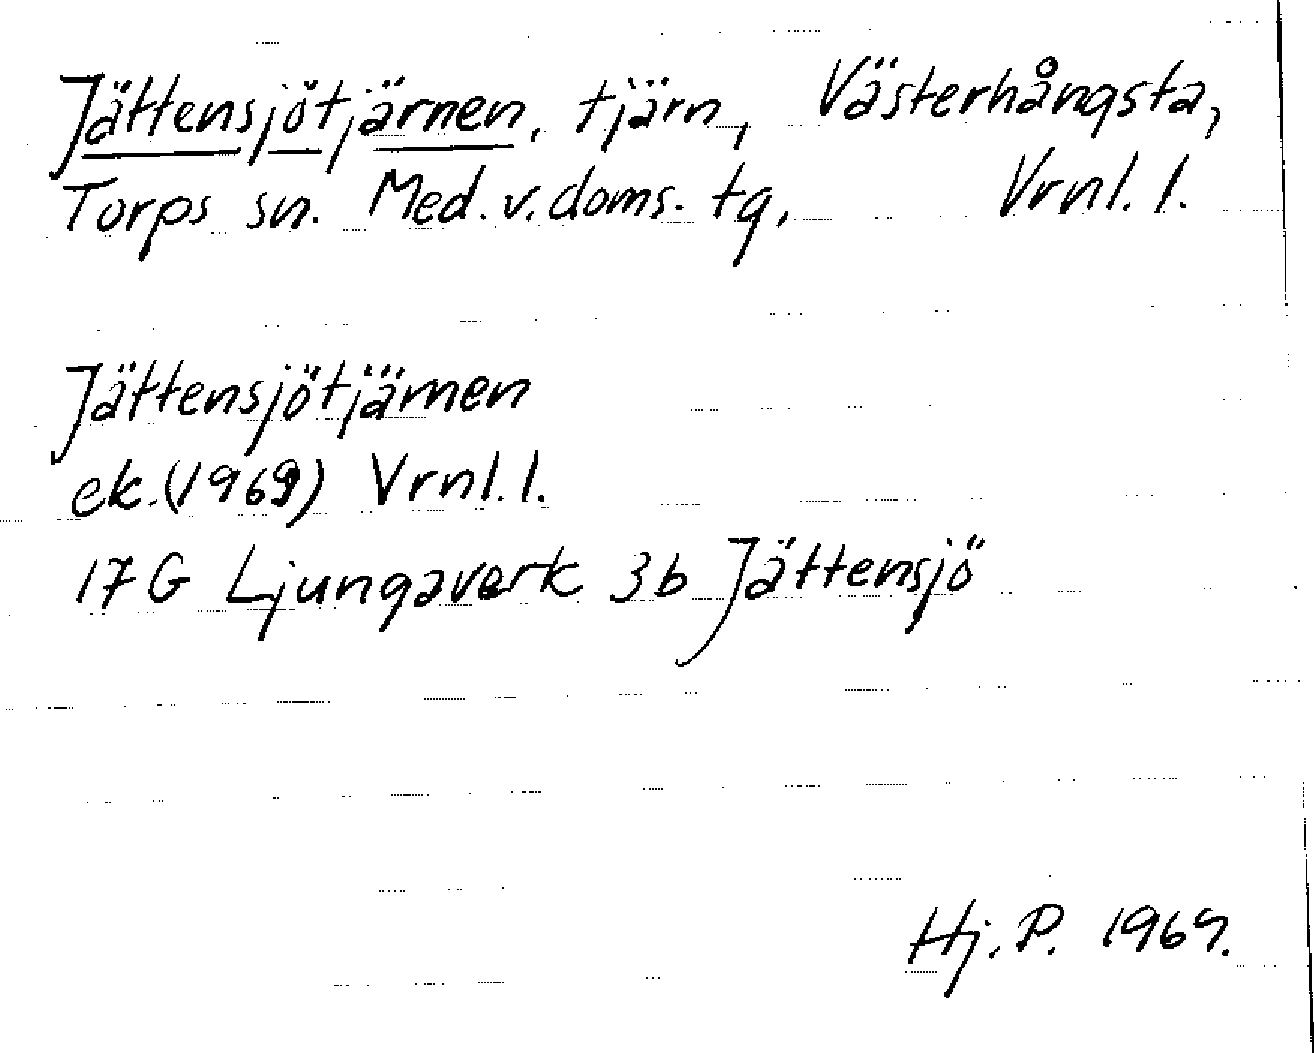 Jättensjötjärnen, tjärn, Västerhångsta,
Torps sn. Med. v. doms. tg, Vrnl. l.
Jättensjötjärnen
ek. (1969) Vrnl. l.
17 G Ljungaverk 3b Jättensjö
Hj. P. 1969.